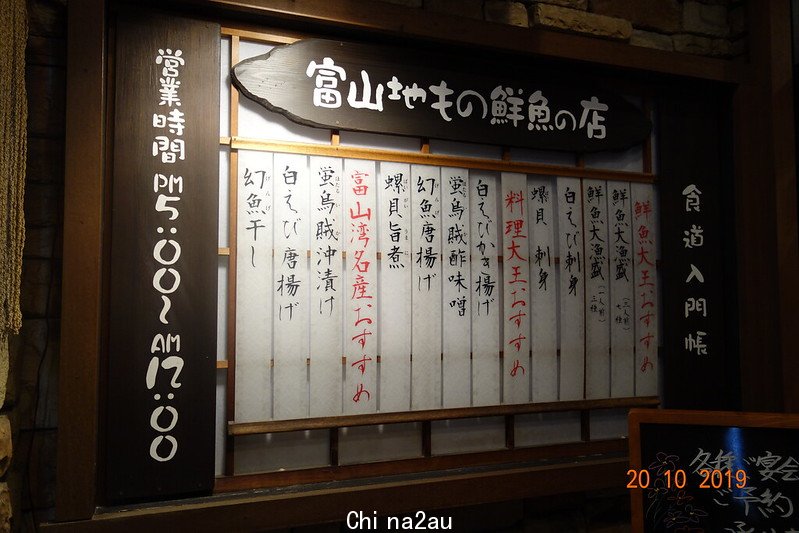 富山地もの鮮魚の店
食道入門帳
鮮魚大王おすすめ
鮮魚大漁盛
鮮魚大漁盛
白えび刺身
螺貝 刺身
料理大王おすすめ
白えびかき揚げ
蛍烏賊酢味噌
幻魚唐揚げ
螺貝旨煮
富山湾名産おすすめ
蛍烏賊沖漬け
白えび唐揚げ
幻魚干し
営業時間 PM 5:00〜AM 12:00
ご宴会
ご予約
20 10 2019
Chi na2au